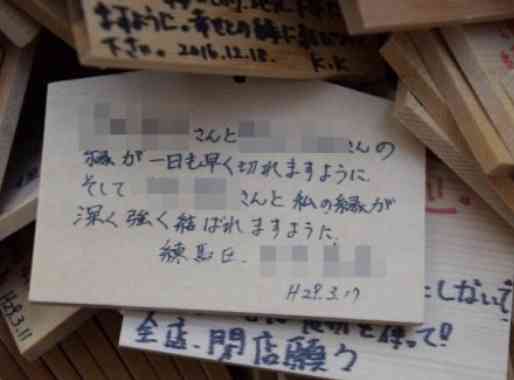 ますように。幸せとの縁に
下さい。2016.12.18. K.K
さんと さんの
縁が一日も早く切れますように
そして さんと私の縁が
深く強く結ばれますように。
練馬区
H29.3.17
H29.3.11
しないで
を使って!!
全店、閉店願々